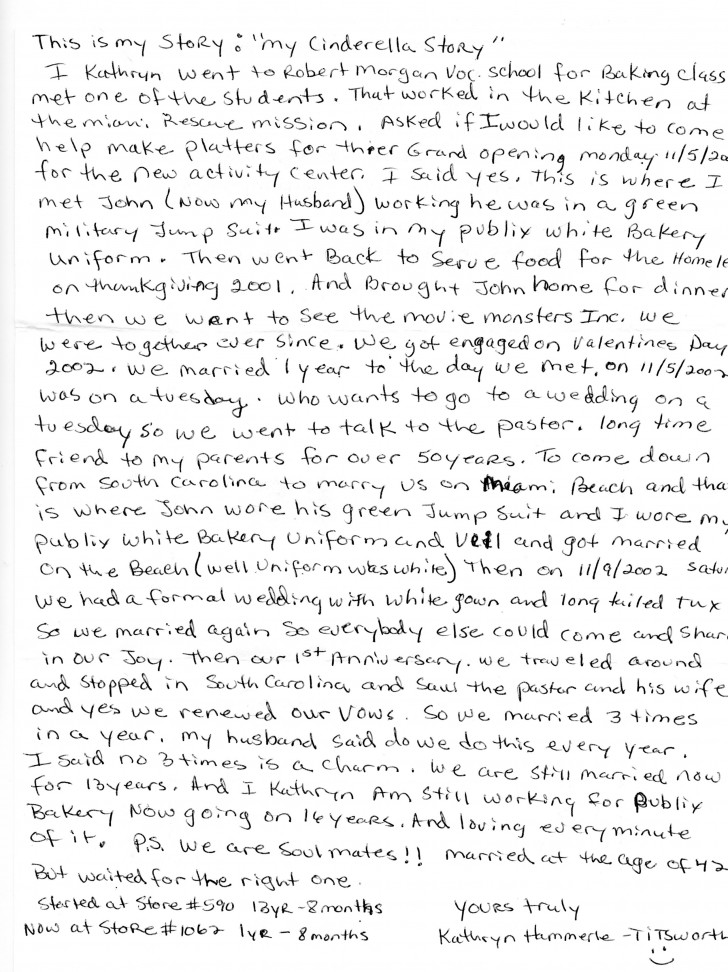 This is my Story : "my Cinderella Story"
I Kathryn went to Robert Morgan Voc. school for Baking Class
met one of the students. That worked in the Kitchen at
the miami Rescue mission. Asked if I would like to come
help make platters for thier Grand opening monday 11/5/200
for the new activity Center. I said yes. This is where I
met John (Now my Husband) working he was in a green
military Jump Suit. I was in my publix white Bakery
Uniform. Then went Back to Serve food for the Homele
on thankgiving 2001. And Brought John home for dinner
then we went to See the movie monsters Inc. we
were together ever since. We got engaged on Valentines Day
2002. we married 1 year to the day we met, on 11/5/2002
was on a tuesday. who wants to go to a wedding on a
tuesday so we went to talk to the pastor. long time
friend to my parents for over 50 years. To come down
from South Carolina to marry us on miami Beach and tha
is where John wore his green Jump Suit and I wore my
publix white Bakery Uniform and Veil and got married
on the Beach (well Uniform was white) Then on 11/9/2002 Satu
we had a formal wedding with white gown and long tailed tux
So we married again So everybody else could come and Shar
in our Joy. Then our 1st Anniversary. we traveled around
and stopped in South Carolina and Saw the pastor and his wife
and yes we renewed our Vows. So we married 3 times
in a year. my husband said do we do this every year.
I said no 3 times is a charm. We are still married now
for 13 years. And I Kathryn Am still working for Publix
Bakery Now going on 16 years. And loving every minute
of it. P.S. We are Soul mates!! married at the age of 42
But waited for the right one.
Started at Store #590 13yr - 8 months
Yours truly
Now at Store #1062 1yr - 8 months
Kathryn Hammerle - TiTsworth